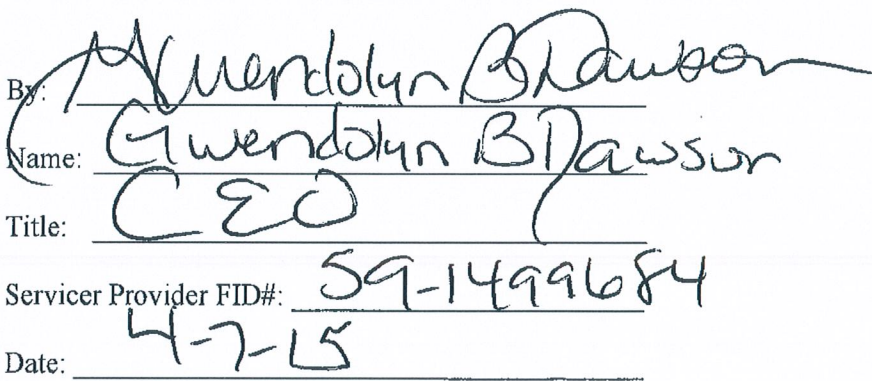 By: Gwendolyn B Dawson
Name: Gwendolyn B Dawson
Title: CEO
Servicer Provider FID#: 59-1499684
Date: 4-7-15